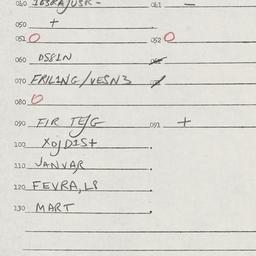 040 041 -
050 +
051 052
060 DS8IN
070 FRILING/VESN3
080
090 FIR TE/G 091 +
100 XOJDIS+
110 JANVAR
120 FEVRA,L8
130 MART